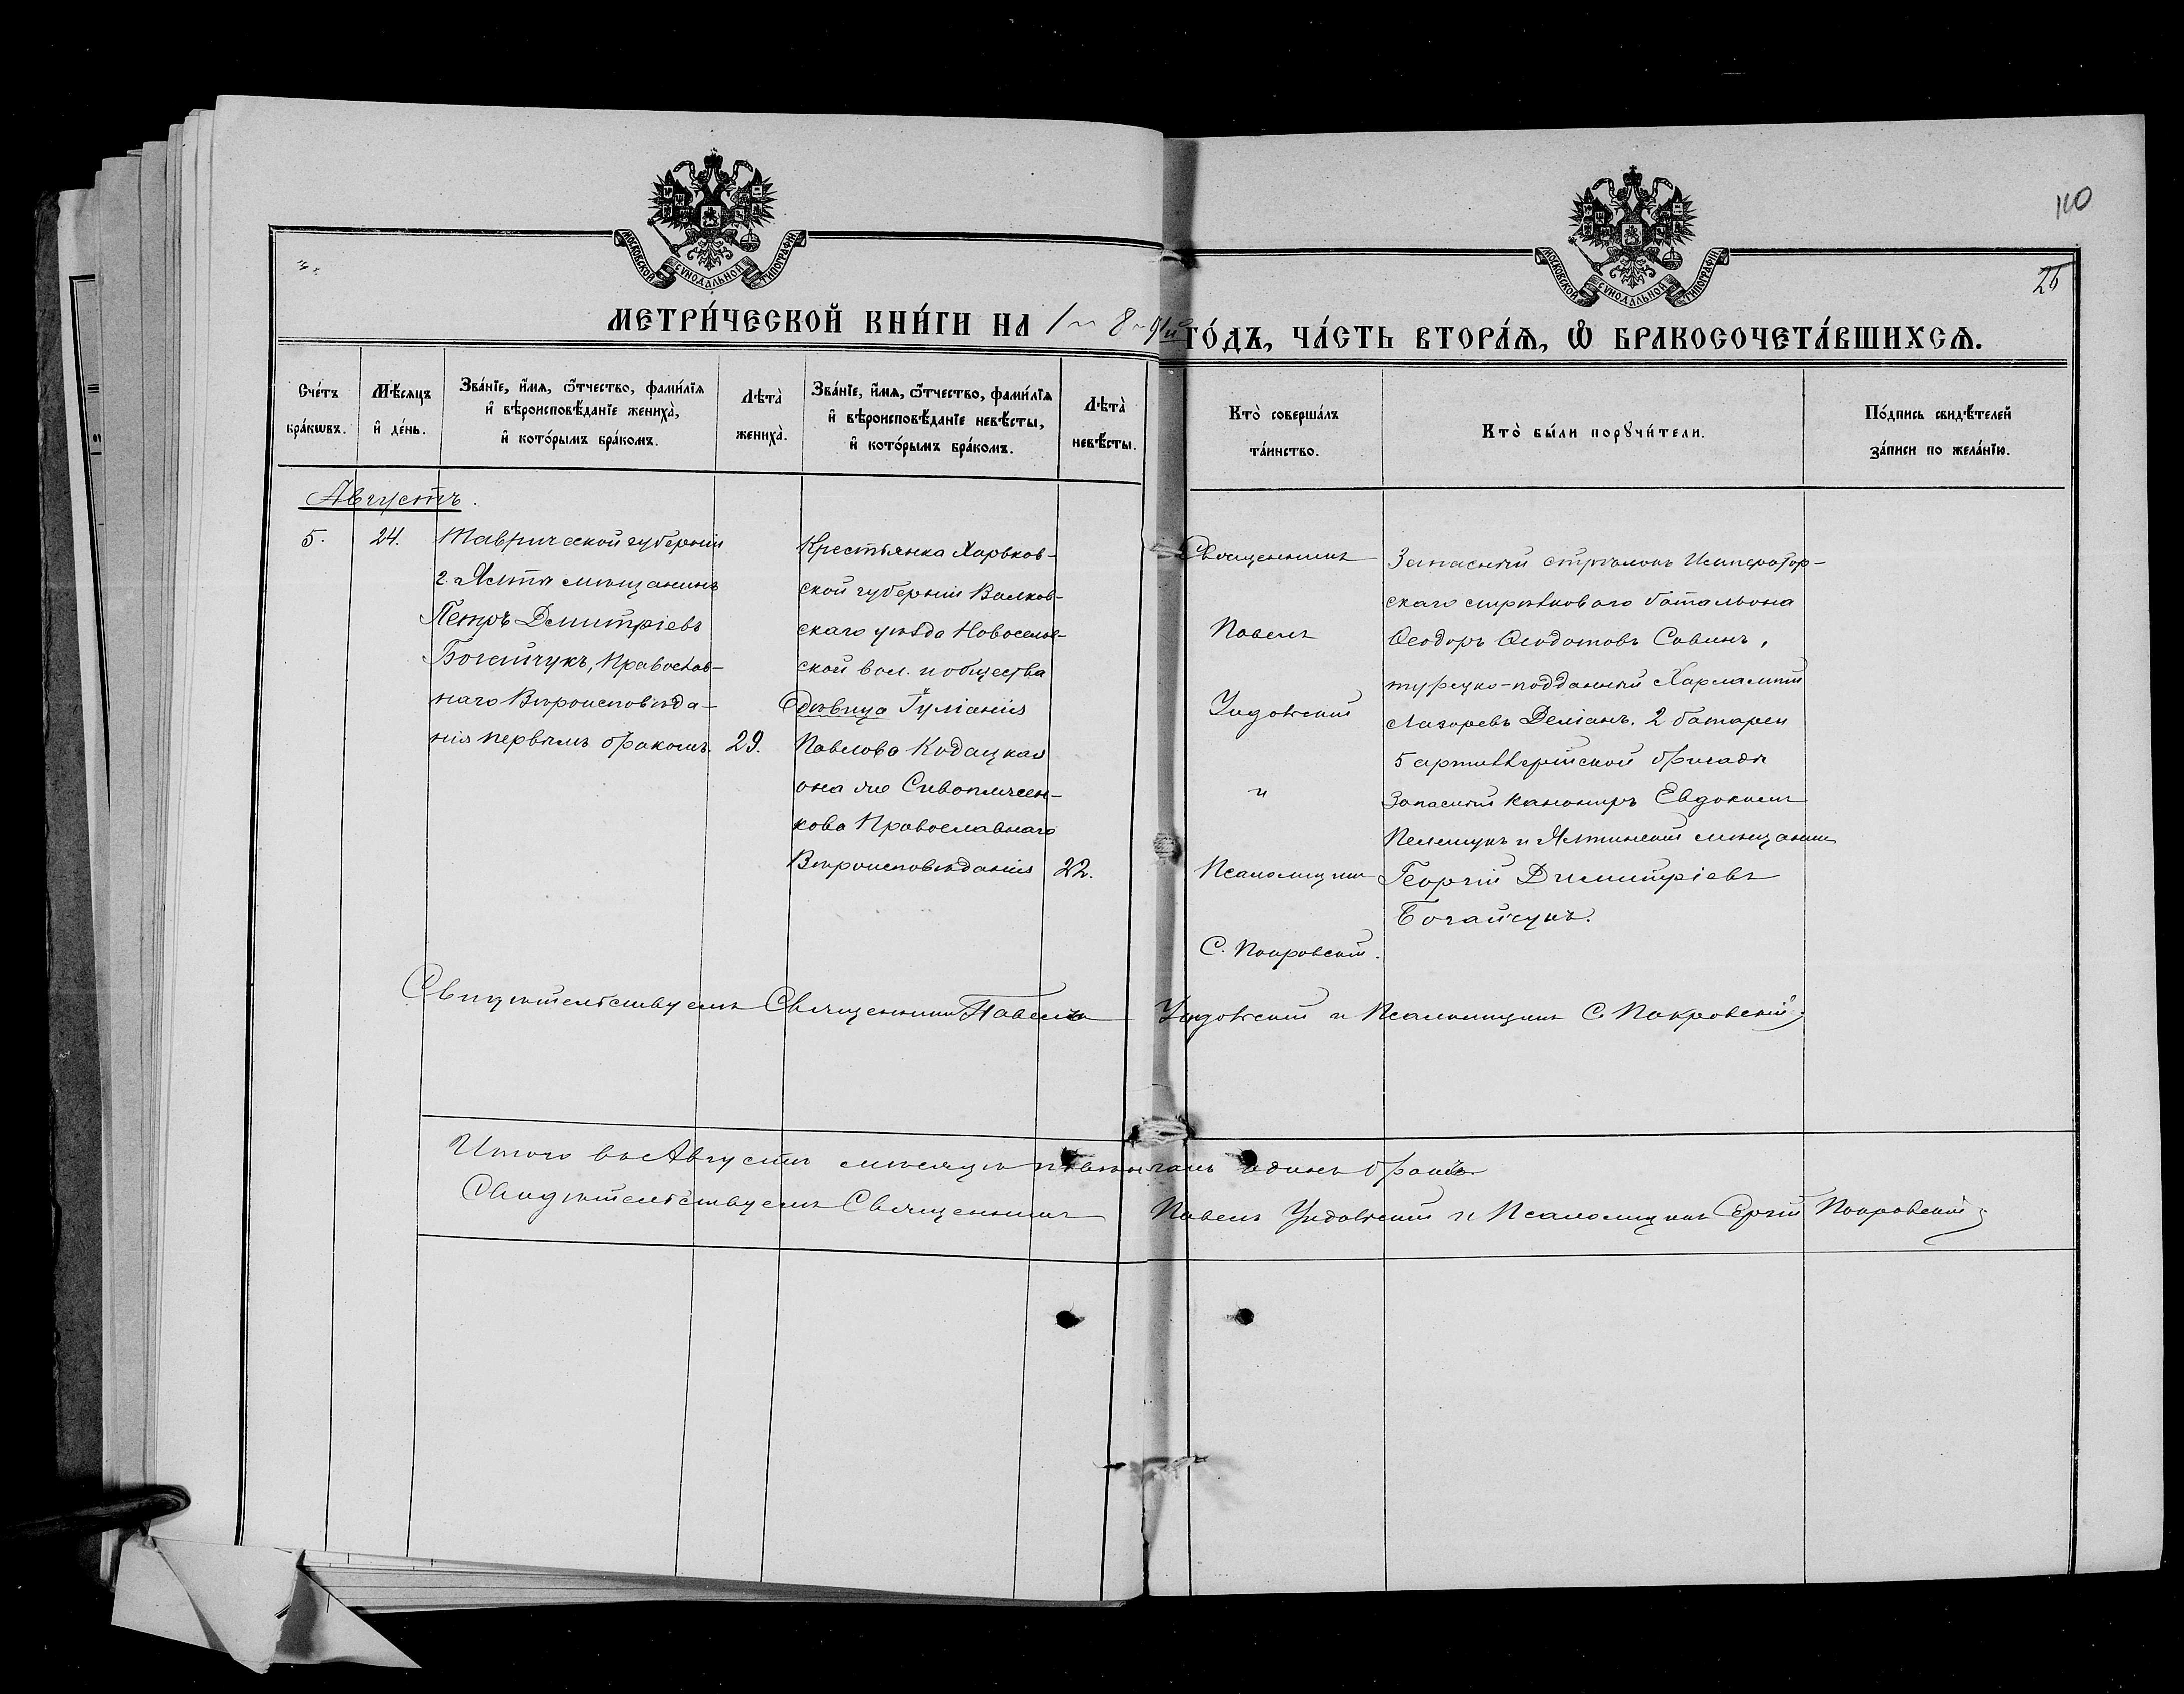 110
26
МОСКОВСКОЙ СѴНОДАЛЬНОЙ ТИПОГРАФІИ
МОСКОВСКОЙ СѴНОДАЛЬНОЙ ТИПОГРАФІИ
МЕТРИ́ЧЕСКОЙ КНИ́ГИ НА 1 8 91й ГО́ДЪ, ЧА́СТЬ ВТОРА́Ѧ, Ѽ БРАКОСОЧЕТА́ВШИХСѦ.
Сче́тъ бра́кѡвъ.
Мѣ́сяцъ и де́нь.
Зва́нїе, и́мя, ѻ́тчество, фами́лїя
и вѣроисповѣ́данїе жениха̀,
и кото́рымъ бра́комъ.
Лѣта̀ жениха̀.
Зва́нїе, и́мя, ѻ́тчество, фами́лїя
и вѣроисповѣ́данїе невѣ́сты,
и кото́рымъ бра́комъ.
Лѣта̀ невѣ́сты.
Кто̀ соверша́лъ та́инство.
Кто̀ бы́ли порꙋчи́тели.
По́дпись свидѣ́телей за́писи по жела́нїю.
Августъ.
5.
24.
Таврической губерніи
г. Ялты мѣщанинъ
Петръ Димитріевъ
Богайчукъ, Православ-
наго Вѣроисповѣда-
нія первымъ бракомъ.
29.
Крестьянка Харьков-
ской губерніи Валков-
скаго уѣзда Новосель-
ской вол. и общества
дѣвица Іуліанія
Павлова Кодацкая
она же Сивоплясен-
кова Православнаго
Вѣроисповѣданія
22.
Священникъ
Павелъ
Ундольскій
и
Псаломщикъ
С. Покровскій.
Запасный стрѣлокъ Император-
скаго стрѣлковаго баталіона
Ѳеодоръ Ѳеодотовъ Савинъ,
турецко-подданный Харлампій
Лазаревъ Деліанъ. 2 батареи
5 артиллерійской бригады
Запасный канониръ Евдокимъ
Пелещукъ и Ялтинскій мѣщанинъ
Георгій Димитріевъ
Богайчукъ.
Свидѣтельствуемъ Священникъ Павелъ Ундольскій и Псаломщикъ С. Покровскій
Итого въ Августѣ мѣсяцѣ повѣнчанъ одинъ бракъ
Свидѣтельствуемъ Священникъ Павелъ Ундольскій и Псаломщикъ Сергій Покровскій